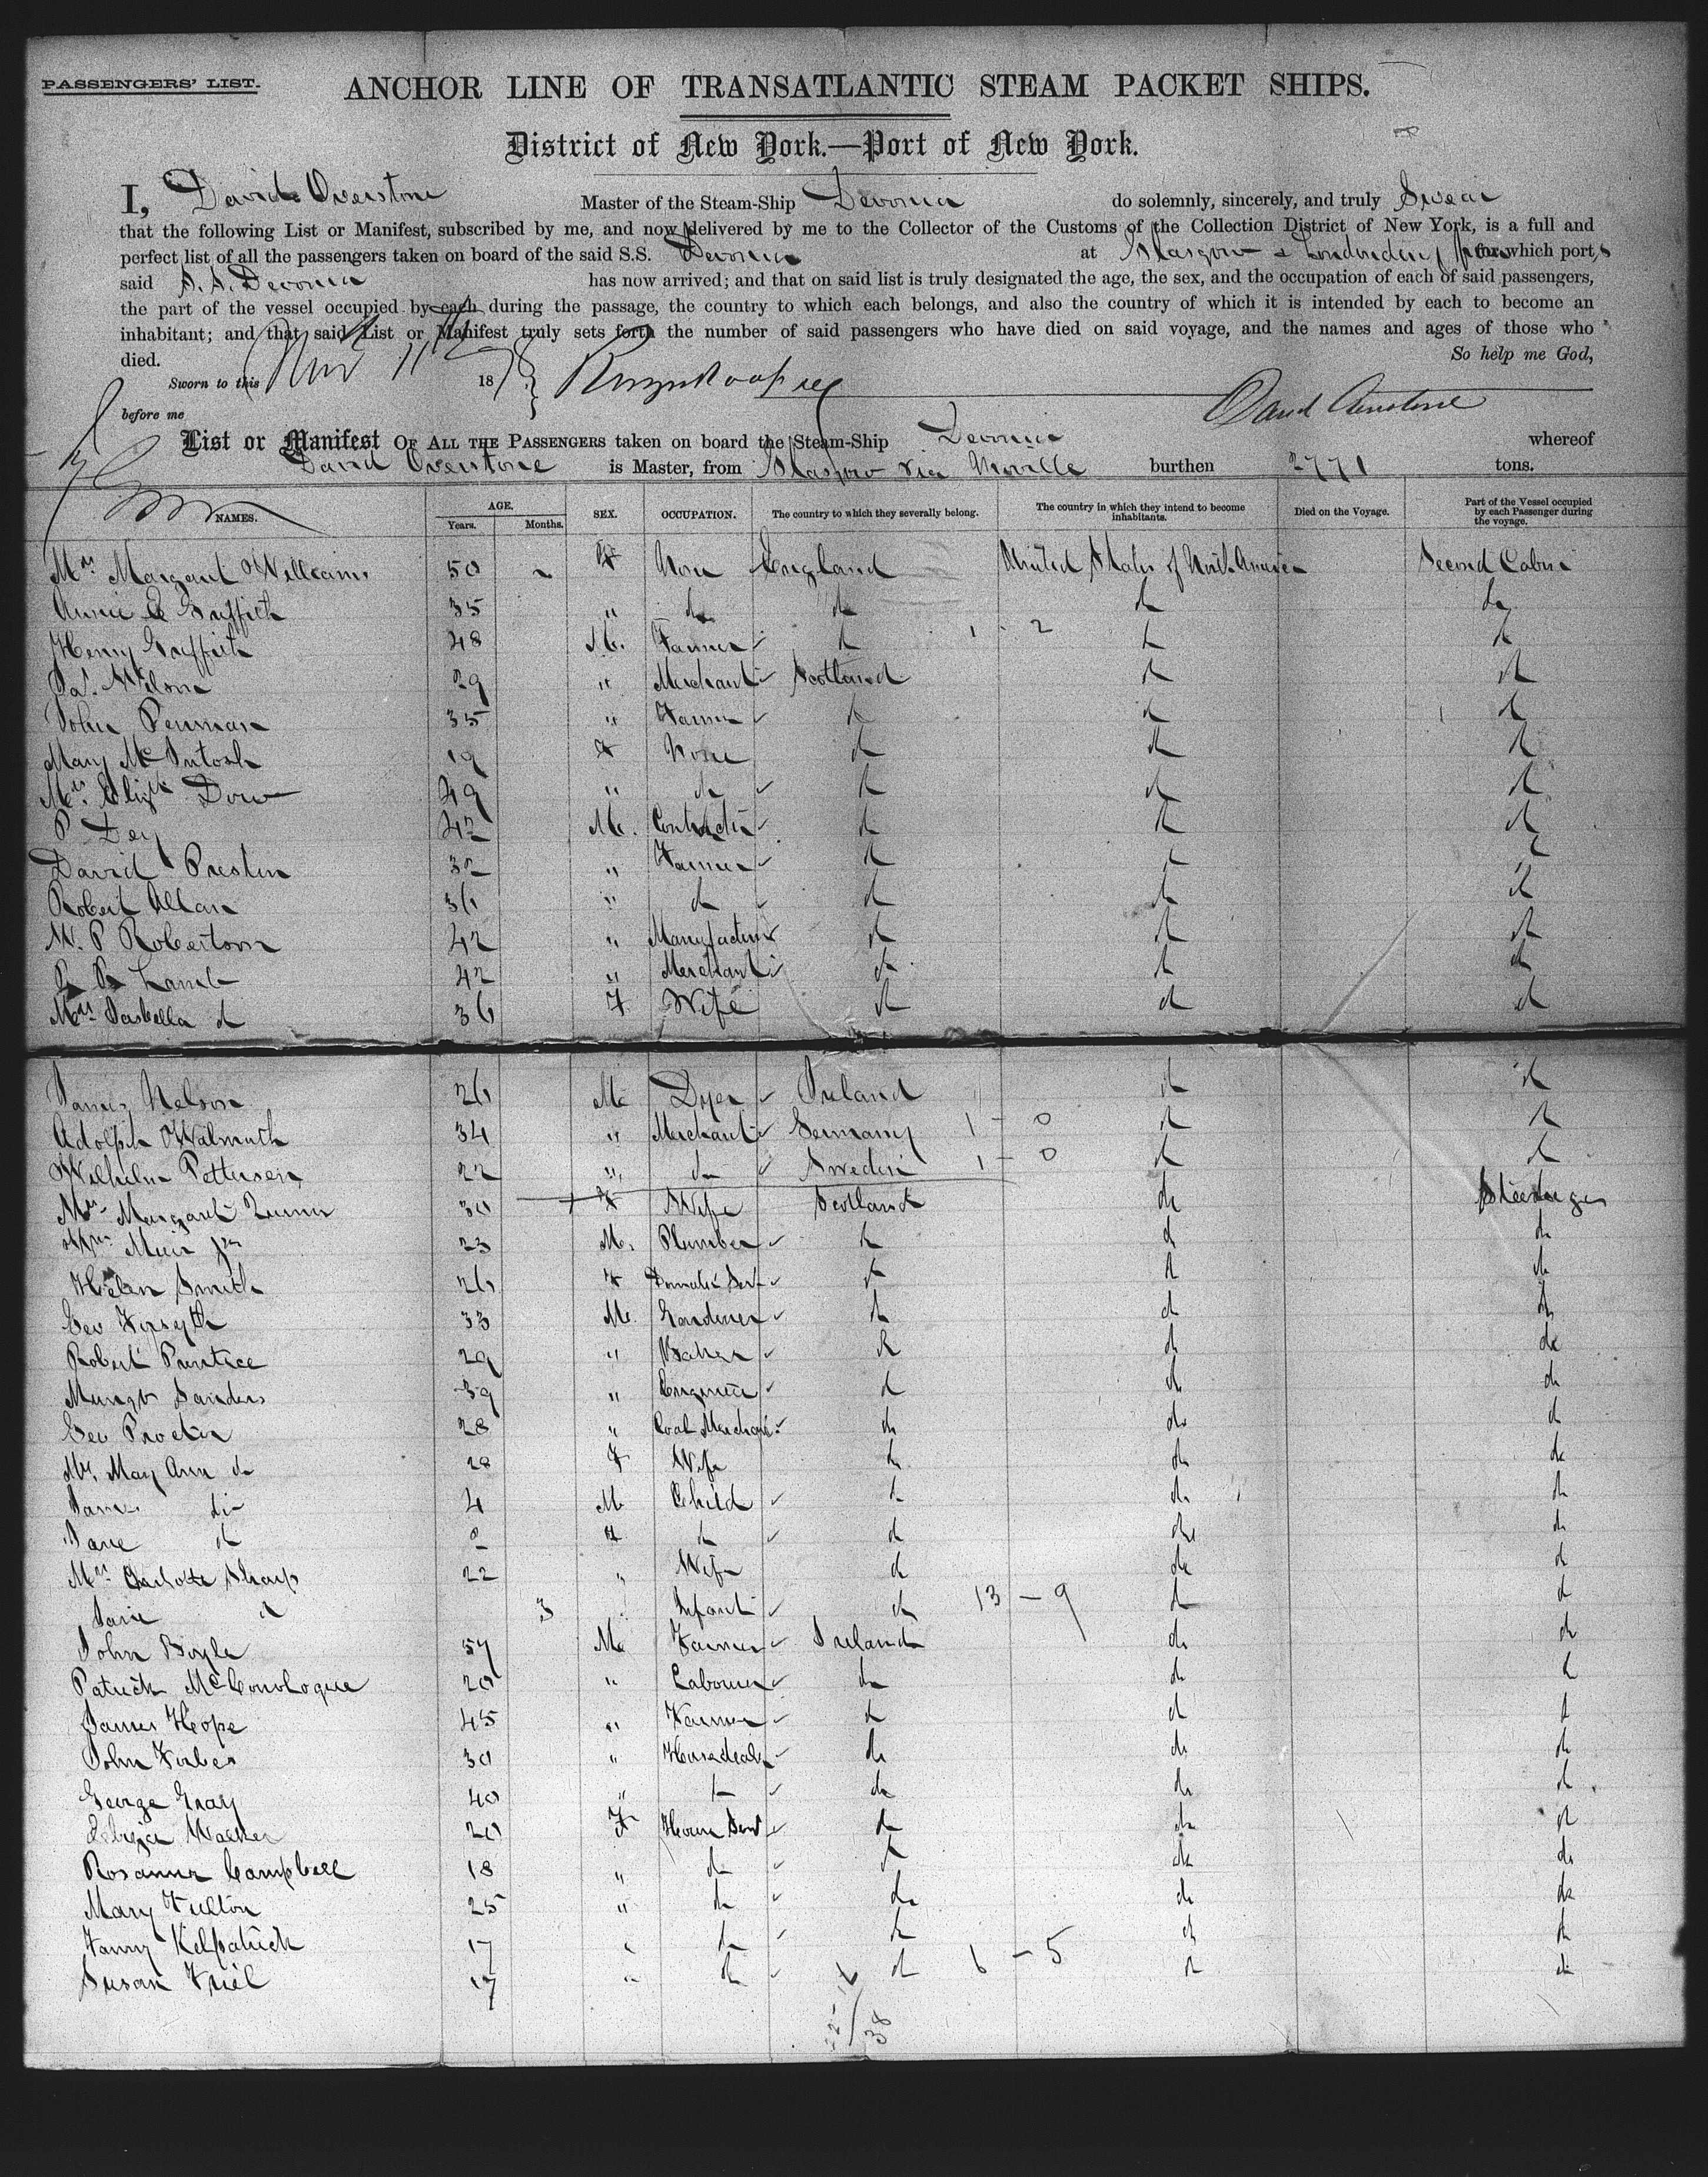 PASSENGERS' LIST.
ANCHOR LINE OF TRANSATLANTIC STEAM PACKET SHIPS.
District of New York.—Port of New York.
I, David Overstone Master of the Steam-Ship Devonia do solemnly, sincerely, and truly Swear
that the following List or Manifest, subscribed by me, and now delivered by me to the Collector of the Customs of the Collection District of New York, is a full and
perfect list of all the passengers taken on board of the said S.S. Devonia at Glasgow & Londonderry from which ports
said S.S. Devonia has now arrived; and that on said list is truly designated the age, the sex, and the occupation of each of said passengers,
the part of the vessel occupied by each during the passage, the country to which each belongs, and also the country of which it is intended by each to become an
inhabitant; and that said List or Manifest truly sets forth the number of said passengers who have died on said voyage, and the names and ages of those who
died.
So help me God,
Sworn to this 11 187
before me
David Overstone
List or Manifest OF ALL THE PASSENGERS taken on board the Steam-Ship Devonia whereof
David Overstone is Master, from Glasgow via Moville burthen 2771 tons.
NAMES. AGE. Years. Months. SEX. OCCUPATION. The country to which they severally belong. The country in which they intend to become inhabitants. Died on the Voyage. Part of the Vessel occupied by each Passenger during the voyage.
Mrs Margaret Williams 50 F None England United States of North America Second Cabin
Annie Griffith 35 " do do do do
Henry Griffith 48 M. Farmer do 1 - 2 do do
Jas. Wilson 29 " Merchant Scotland do do
John Penman 35 " Farmer do do do
Mary McIntosh 19 F None do do do
Mrs Elizth Dow 49 " do do do do
P Dey 42 M. Contractor do do do
David Preston 32 " Farmer do do do
Robert Allan 36 " do do do do
W. P Robertson 42 " Manufacturer do do do
Lamb 42 " Merchant do do do
Mrs Isabella do 36 F. Wife do do do
James Nelson 26 M Dyer Ireland do do
Adolph Walmuth 34 " Merchant Germany 1 - 0 do do
Wilhelm Pettersen 22 " do Sweden 1 - 0 do do
Mrs Margaret 30 F Wife Scotland do Steerage
Muir Jnr 23 M. Plumber do do do
Helen Smith 26 F Domestic Servt do do do
Geo Forsyth 33 M. Gardener do do do
Robert Prentice 29 " Baker do do do
Mungo Sanders 39 " Engineer do do do
Geo Procter 28 " Coal Merchant do do do
Mrs. Mary Ann do 28 F Wife do do do
James do 4 M Child do do do
Jane do 2 F do do do do
Mrs Charlotte Sharp 22 " Wife do do do
Jane do 3 " Infant do 13 - 9 do do
John Boyle 57 M Farmer Ireland do do
Patrick McConologue 20 " Labourer do do do
James Hope 45 " Farmer do do do
John Forbes 30 " Horsedealer do do do
George Gray 40 " do do do do
Walker 20 F House Servt do do do
Rosanna Campbell 18 " do do do do
Mary Fulton 25 " do do do do
Fanny Kilpatrick 17 " do do do do
Susan Friel 17 " do do 6 - 5 do do
22-16/38